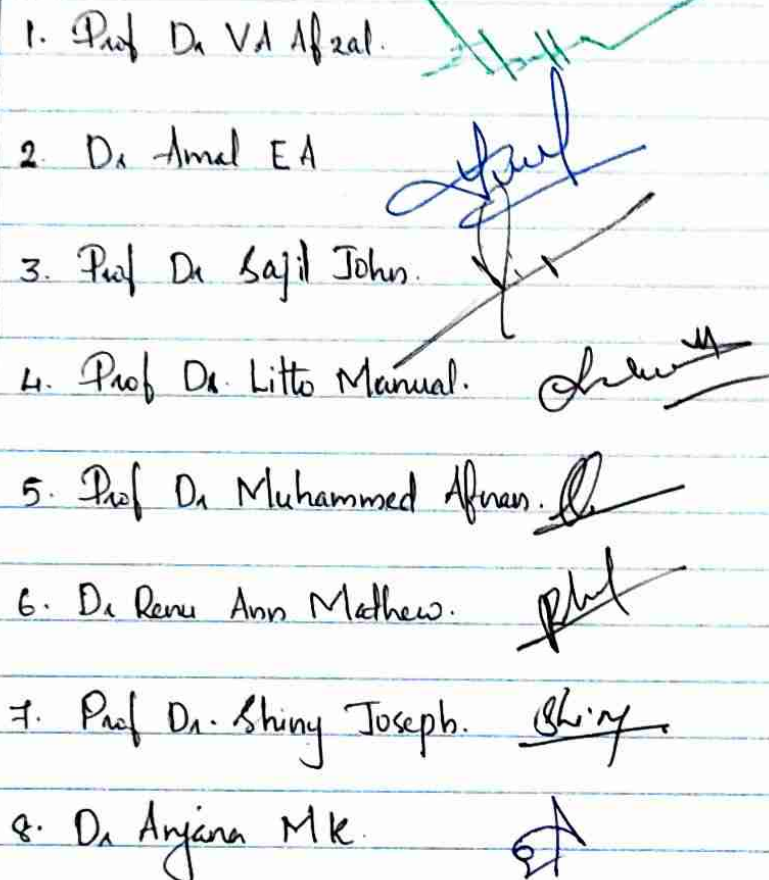 1. Prof Dr VA Afzal.
2. Dr Amal E A
3. Prof Dr Sajil John.
4. Prof Dr. Litto Manual.
5. Prof Dr Muhammed Afnan.
6. Dr Renu Ann Mathew.
7. Prof Dr. Shiny Joseph. Shiny
8. Dr Anjana M K.